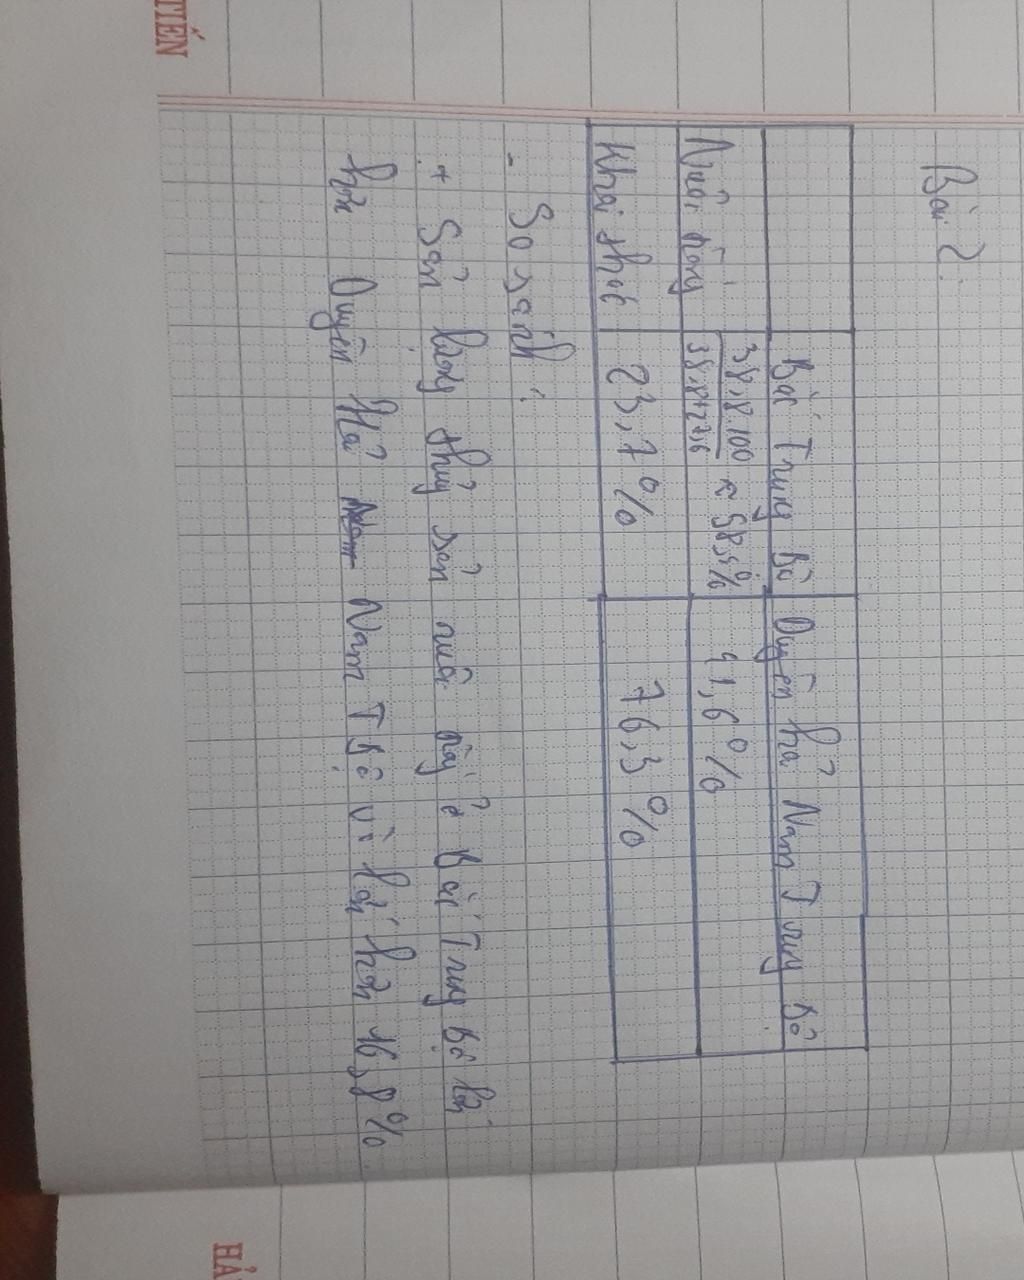 TIẾN
Bài 2.
Bắc Trung Bộ Duyên hải Nam Trung Bộ
Nuôi trồng 38,8.100 / 38,8+27,6 ≈ 58,4% 41,6%
Khai thác 23,7% 76,3%
- So sánh :
+ Sản lượng thủy sản nuôi trồng ở Bắc Trung Bộ lớn
hơn Duyên Hải Nam Trung Bộ vì lớn hơn 16,8%